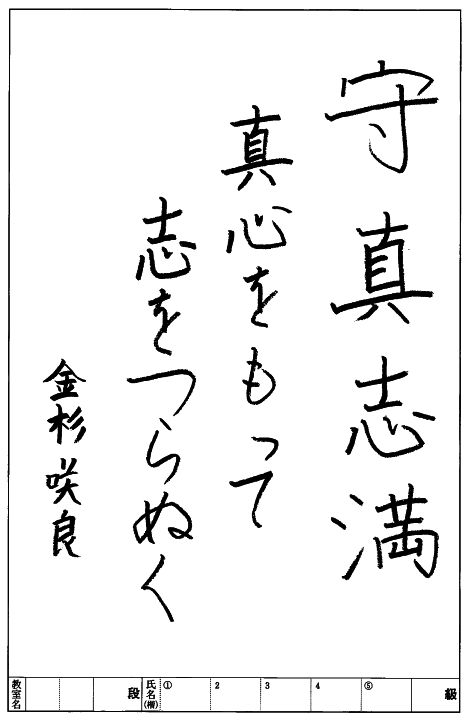 守真志満
真心をもって
志をつらぬく
金杉咲良
級 ⑤ 4 3 2 ① 氏名(横) 段 教室名